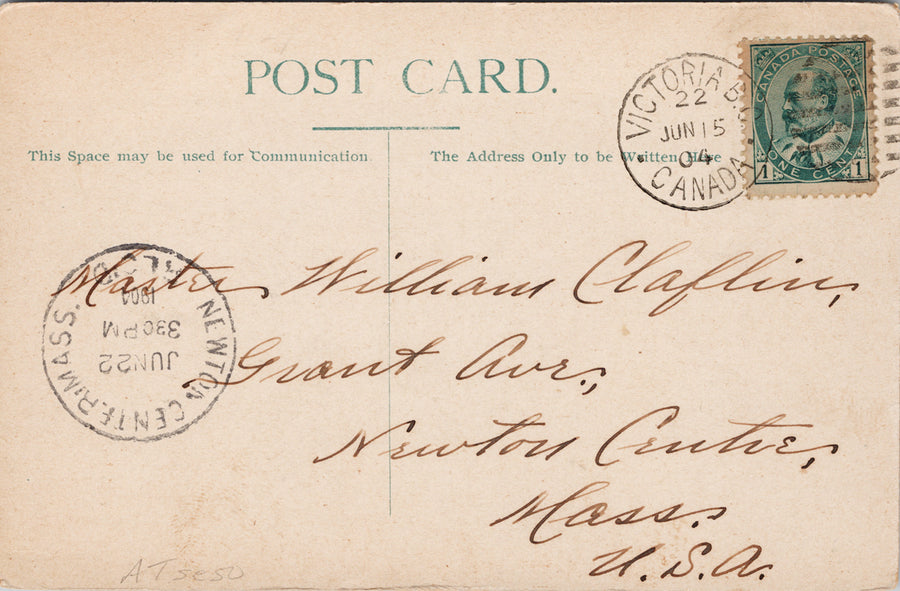 POST CARD.
VICTORIA B.C.
22
JUN 15
04
CANADA
CANADA POSTAGE
1 ONE CENT 1
This Space may be used for Communication
The Address Only to be Written Here
Master William Claflin,
Grant Ave.,
Newton Centre,
Mass.
U.S.A.
NEWTON CENTER, MASS.
JUN 22
330 PM
1904
REC'D